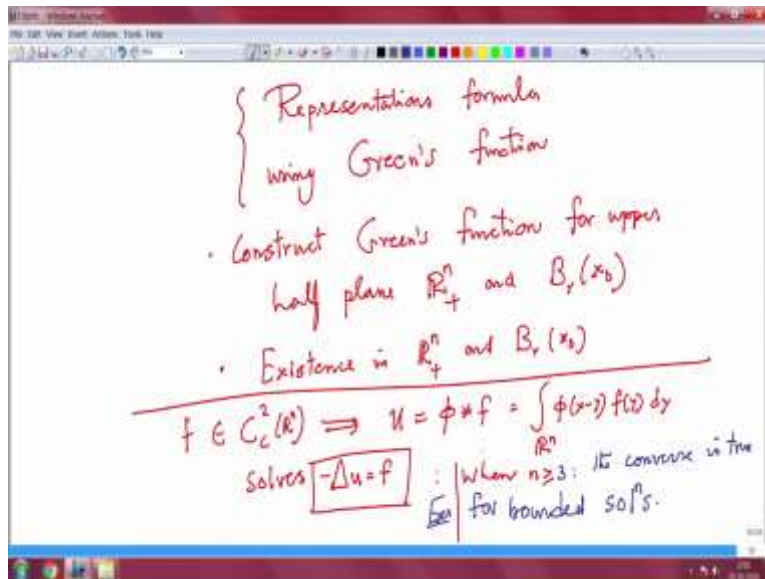 File Edit View Insert Actions Tools Help
Representations formula
using Green's function
· Construct Green's function for upper
half plane ℝⁿ₊ and Bᵣ(x₀)
· Existence in ℝⁿ₊ and Bᵣ(x₀)
f ∈ C²_c(ℝⁿ) ⟹ u = ϕ * f = ∫_ℝⁿ ϕ(x-y) f(y) dy
solves -Δu = f : When n ≥ 3: Its converse is true
for bounded solⁿs.